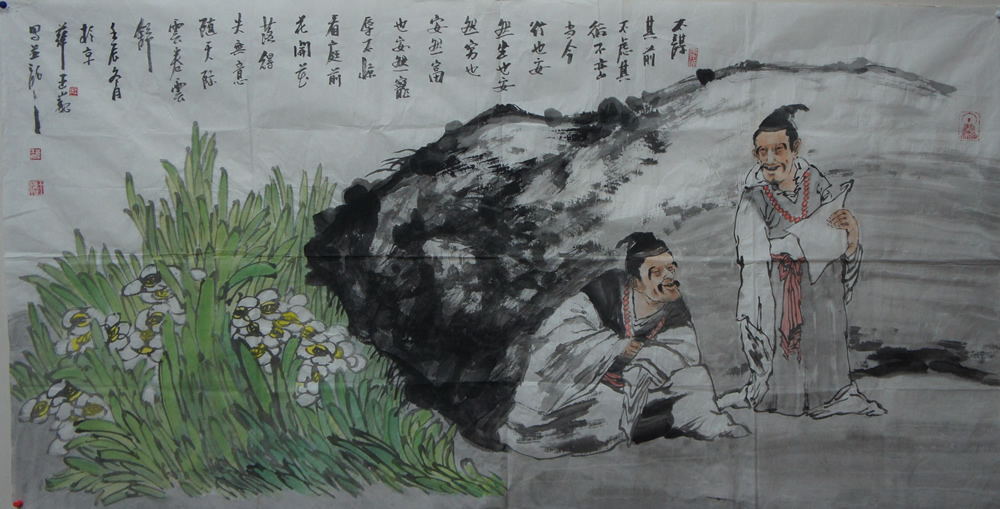 不謀
其前
不慮其
後不恋
当今
行也安
然坐也安
然穷也
安然富
也安然寵
辱不驚
看庭前
花開花
落得
失無意
随天际
雲卷雲
舒
壬辰冬月
於京
華王